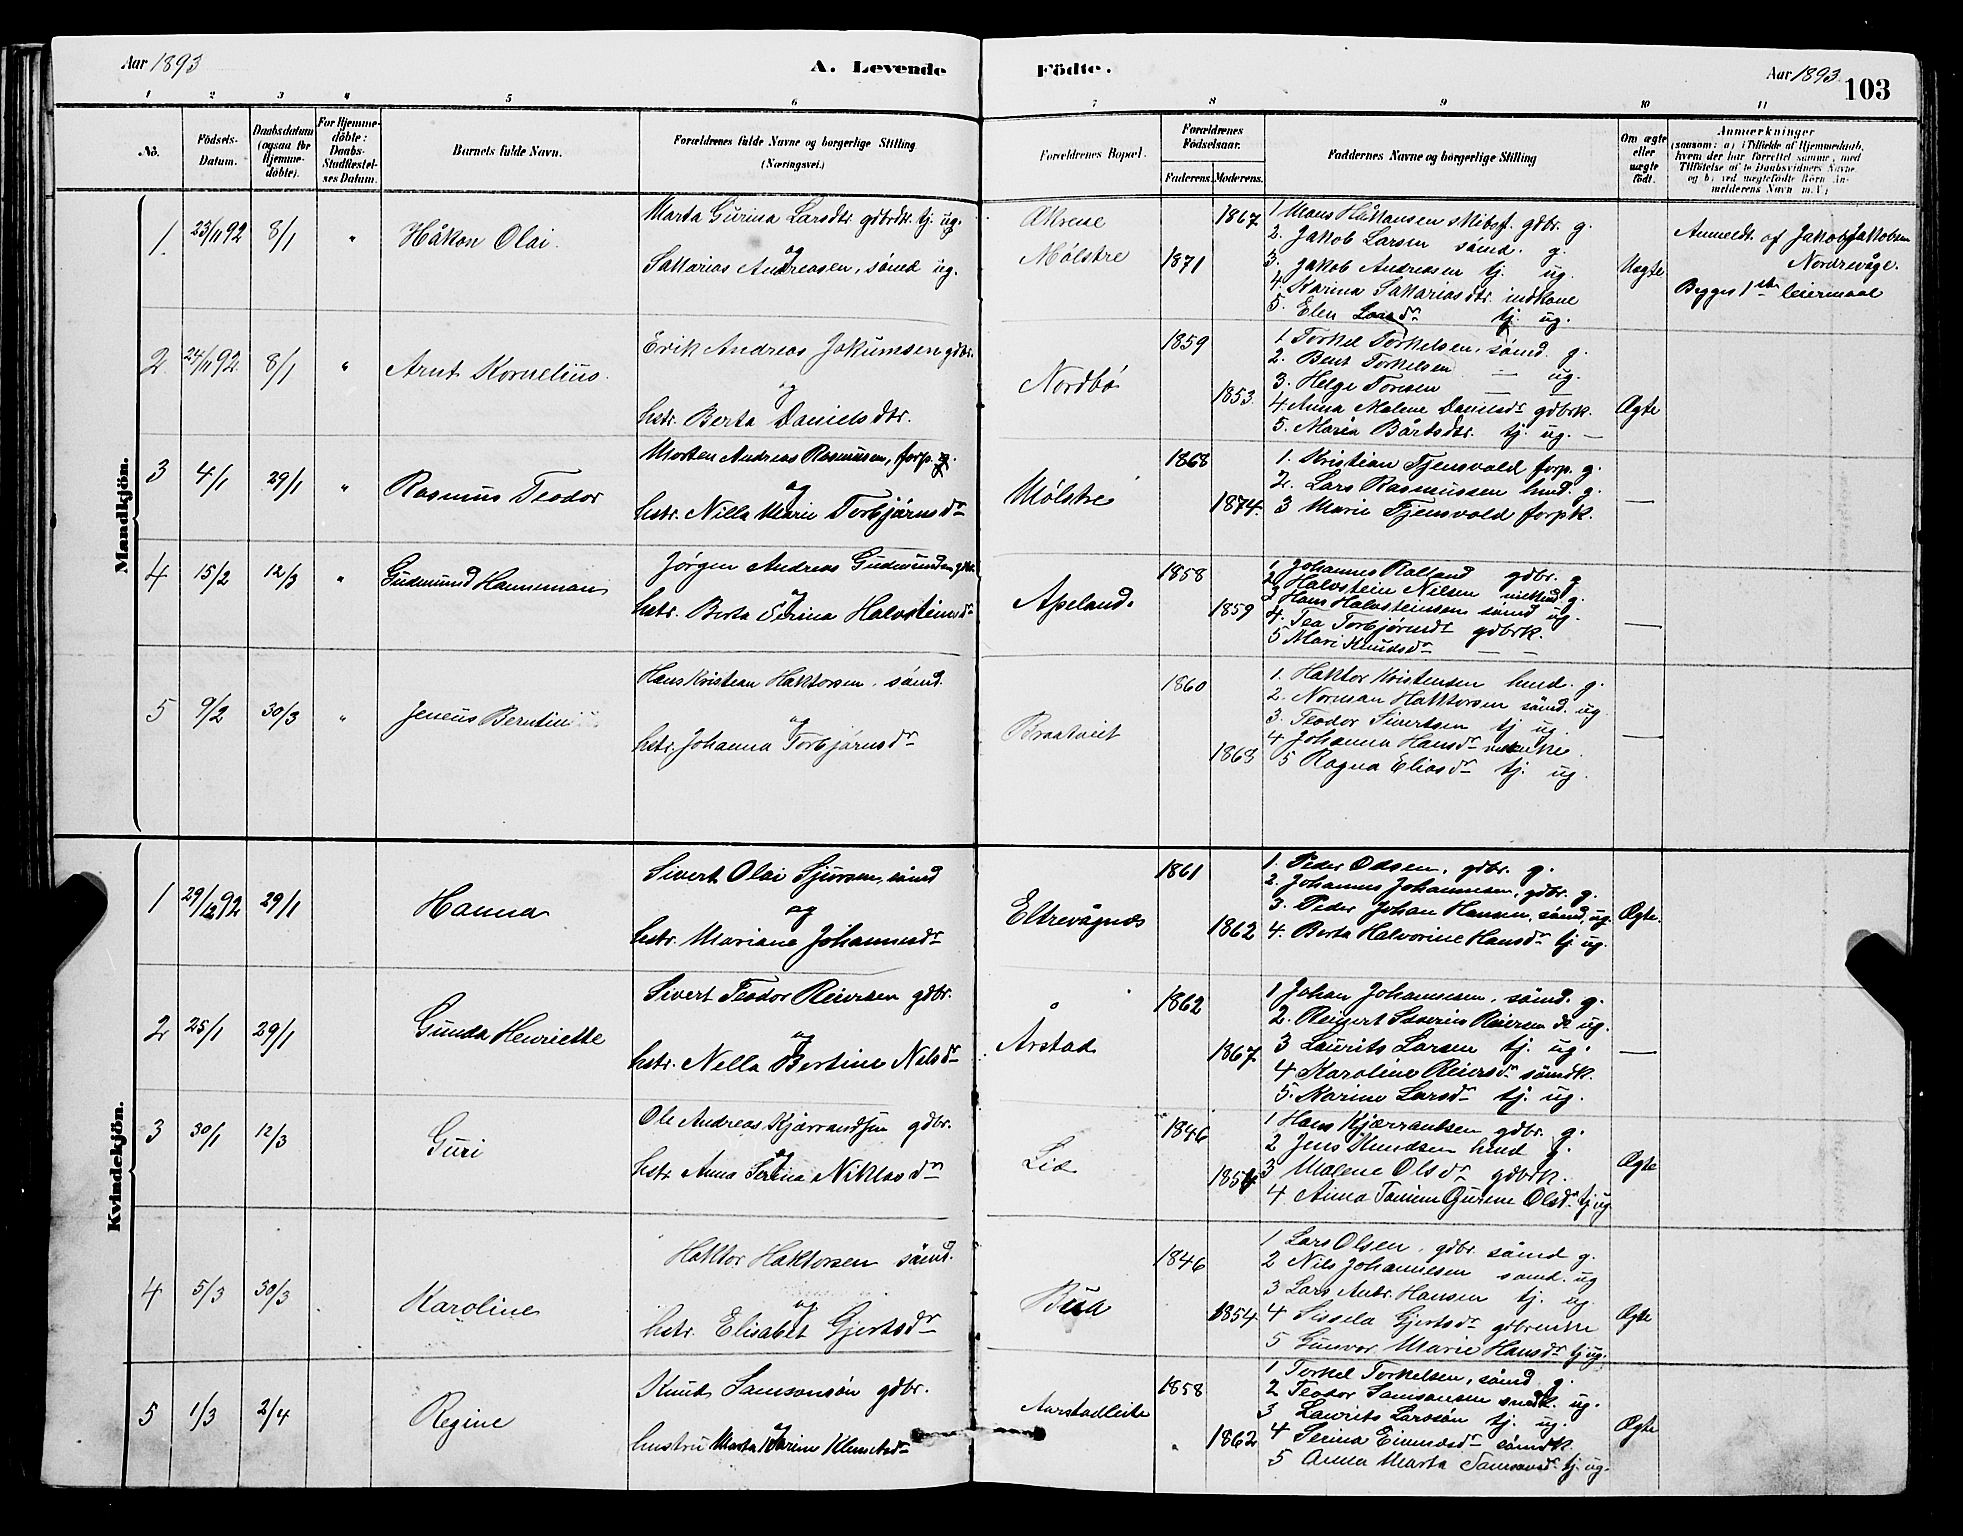 Aar 1893
A. Levende Födte.
Aar 1893
103
1 2 3 4 5 6 7 8 9 10 11
No.
Födsels-Datum.
Daabsdatum (ogsaa for Hjemme-döbte).
For Hjemme-döbte: Daabs-Stadfæstel-ses Datum.
Barnets fulde Navn.
Forældrenes fulde Navne og borgerlige Stilling (Næringsvei.)
Forældrenes Bopæl.
Forældrenes Födselsaar.
Faderens. Moderens.
Faddernes Navne og borgerlige Stilling
Om ægte eller uægte födt.
Anmærkninger
(saasom: a) i Tilfælde af Hjemmedaab, hvem der har forrettet samme, med Tilföielse af to Daabsvidners Navne og b) ved uægtefödte Börn An-melderens Navn m.V.)
Mandkjön.
1. 23/11 92 8/1 " Håkon Olai.
Marta Gurina Larsdtr. gdbrdtr. tj. ug.
og
Sakarias Andreasen, sömd ug.
Akrene
Mølstre
1867
1871
1 Mons Håkonsen skibsf. gdbr. g.
2. Jakob Larsen sömd. g.
3. Jakob Andreasen tj. ug.
4. Karina Sakariasdtr. indkone
5. Elen Larsdr tj. ug.
Uægte
Anmeldt af Jakob Jakobsen
Nordrevåge.
Begges 1ste leiermaal
2 24/11 92 8/1 " Arnt Kornelius.
Erik Andreas Jokumsen gdbr.
og
hstr. Berta Danielsdtr.
Nordbø
1859
1853.
1 Torkel Torkelsen, sömd. g.
2. Bent Torkelsen — ug.
3. Helge Toresen — —
4. Anna Malene Danielsdr gdbrk.
5. Maria Bårdsdtr. tj. ug. —
Ægte
3 4/1 29/1 " Rasmus Teodor
Morten Andreas Rasmussen, forp. g.
og
hstr. Nilla Marie Torbjörnsdr
Mølstre
1868
1874.
1. Kristian Tjensvold forp. g.
2. Lars Rasmussen hmd. g.
3 Marie Tjensvold forpk.
—
4 15/2 12/3 " Gudmund Hanneman
Jørgen Andreas Gudmundsen gdbr.
og
hstr. Berta Serina Halvsteinsdr
Apeland.
1858
1859
1 Johannes Rolland gdbr. g
2 Halvstein Nilsen g.
3 Hans Halvsteinsen sömd ug.
4. Tea Torbjørnsdt gdbrk.
5 Mari Knudsdr — —
—
5 9/2 30/3 " Jeneus Berntin
Hans Kristian Haktorsen. sömd.
og
hstr. Johanna Torbjörnsdr
Braatveit
1860
1863
1. Haktor Kristensen hmd. g.
2. Norman Haktorsen sömd. ug.
3. Teodor Sivertsen tj ug.
4 Johanna Hansdr
5 Ragna Eliasdr tj. ug.
—
Kvindekjön.
1 29/12 92 29/1 Hanna
Sivert Olai Sjursen, sömd
og
hstr. Mariane Johannesdr
Eltrevågnes
1861
1862
1. Peder Olsen, gdbr. g.
2. Johannes Johannesen, gdbr. g.
3. Peder Johan Hansen, sömd. ug.
4. Berta Halvorine Hansdr tj ug.
Ægte.
2 25/1 29/1 Gunda Henriette
Sivert Teodor Reiersen gdbr.
og
hstr. Nella Bertine Nelsdr
Årstad
1862
1867.
1 Johan Johannesen. sömd. g.
2. Reigert Severin Reiersen do ug.
3 Laurits Larsen tj. ug.
4 Karoline Reiersdr sömdk.
5. Karine Larsdr tj. ug.
—
3 30/1 12/3 Guri
Ole Andreas Kjærrandsen gdbr.
og
hstr Anna Serina Niklasdr
Lie
1846
1854
1 Hans Kjærrantsen gdbr. g.
2 Jens Knudsen hmd g.
3 Malene Olsdr gdbrk.
4 Anna Gurine Olsdr tj ug
Ægte
4 5/3 30/3 Karoline
Haktor Haktorsen sömd.
og
hstr. Elisabet Gjertsdr
Bua
1846
1854.
1 Lars Olsen, gdbr. sömd g.
2 Nils Johannesen sömd. ug
3 Lars Andr. Hansen tj. ug.
4 Sissela Gjertsdr gdbrenke
5 Gunvor Marie Hansdr tj ug.
Ægte
5 1/3 2/4 Regine
Knud Samsonsön gdbr.
og
hustru Marta Karine Klemetsdr
Aarstadleite
1858
1862
1 Torkel Torkelsen, sömd g.
2 Teodor Samsonsen snedk. ug.
3 Laurits Larssön tj. ug.
4 Serina sömdk.
5 Anna Marta Samsonsd. tj. ug.
Ægte